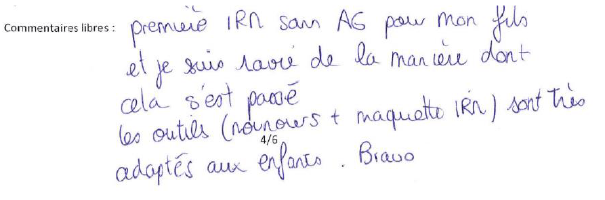 Commentaires libres : première IRM sans AG pour mon fils
et je suis ravie de la manière dont
cela s'est passé
les outils (nounours + maquette IRM) sont très
4/6
adaptés aux enfants. Bravo